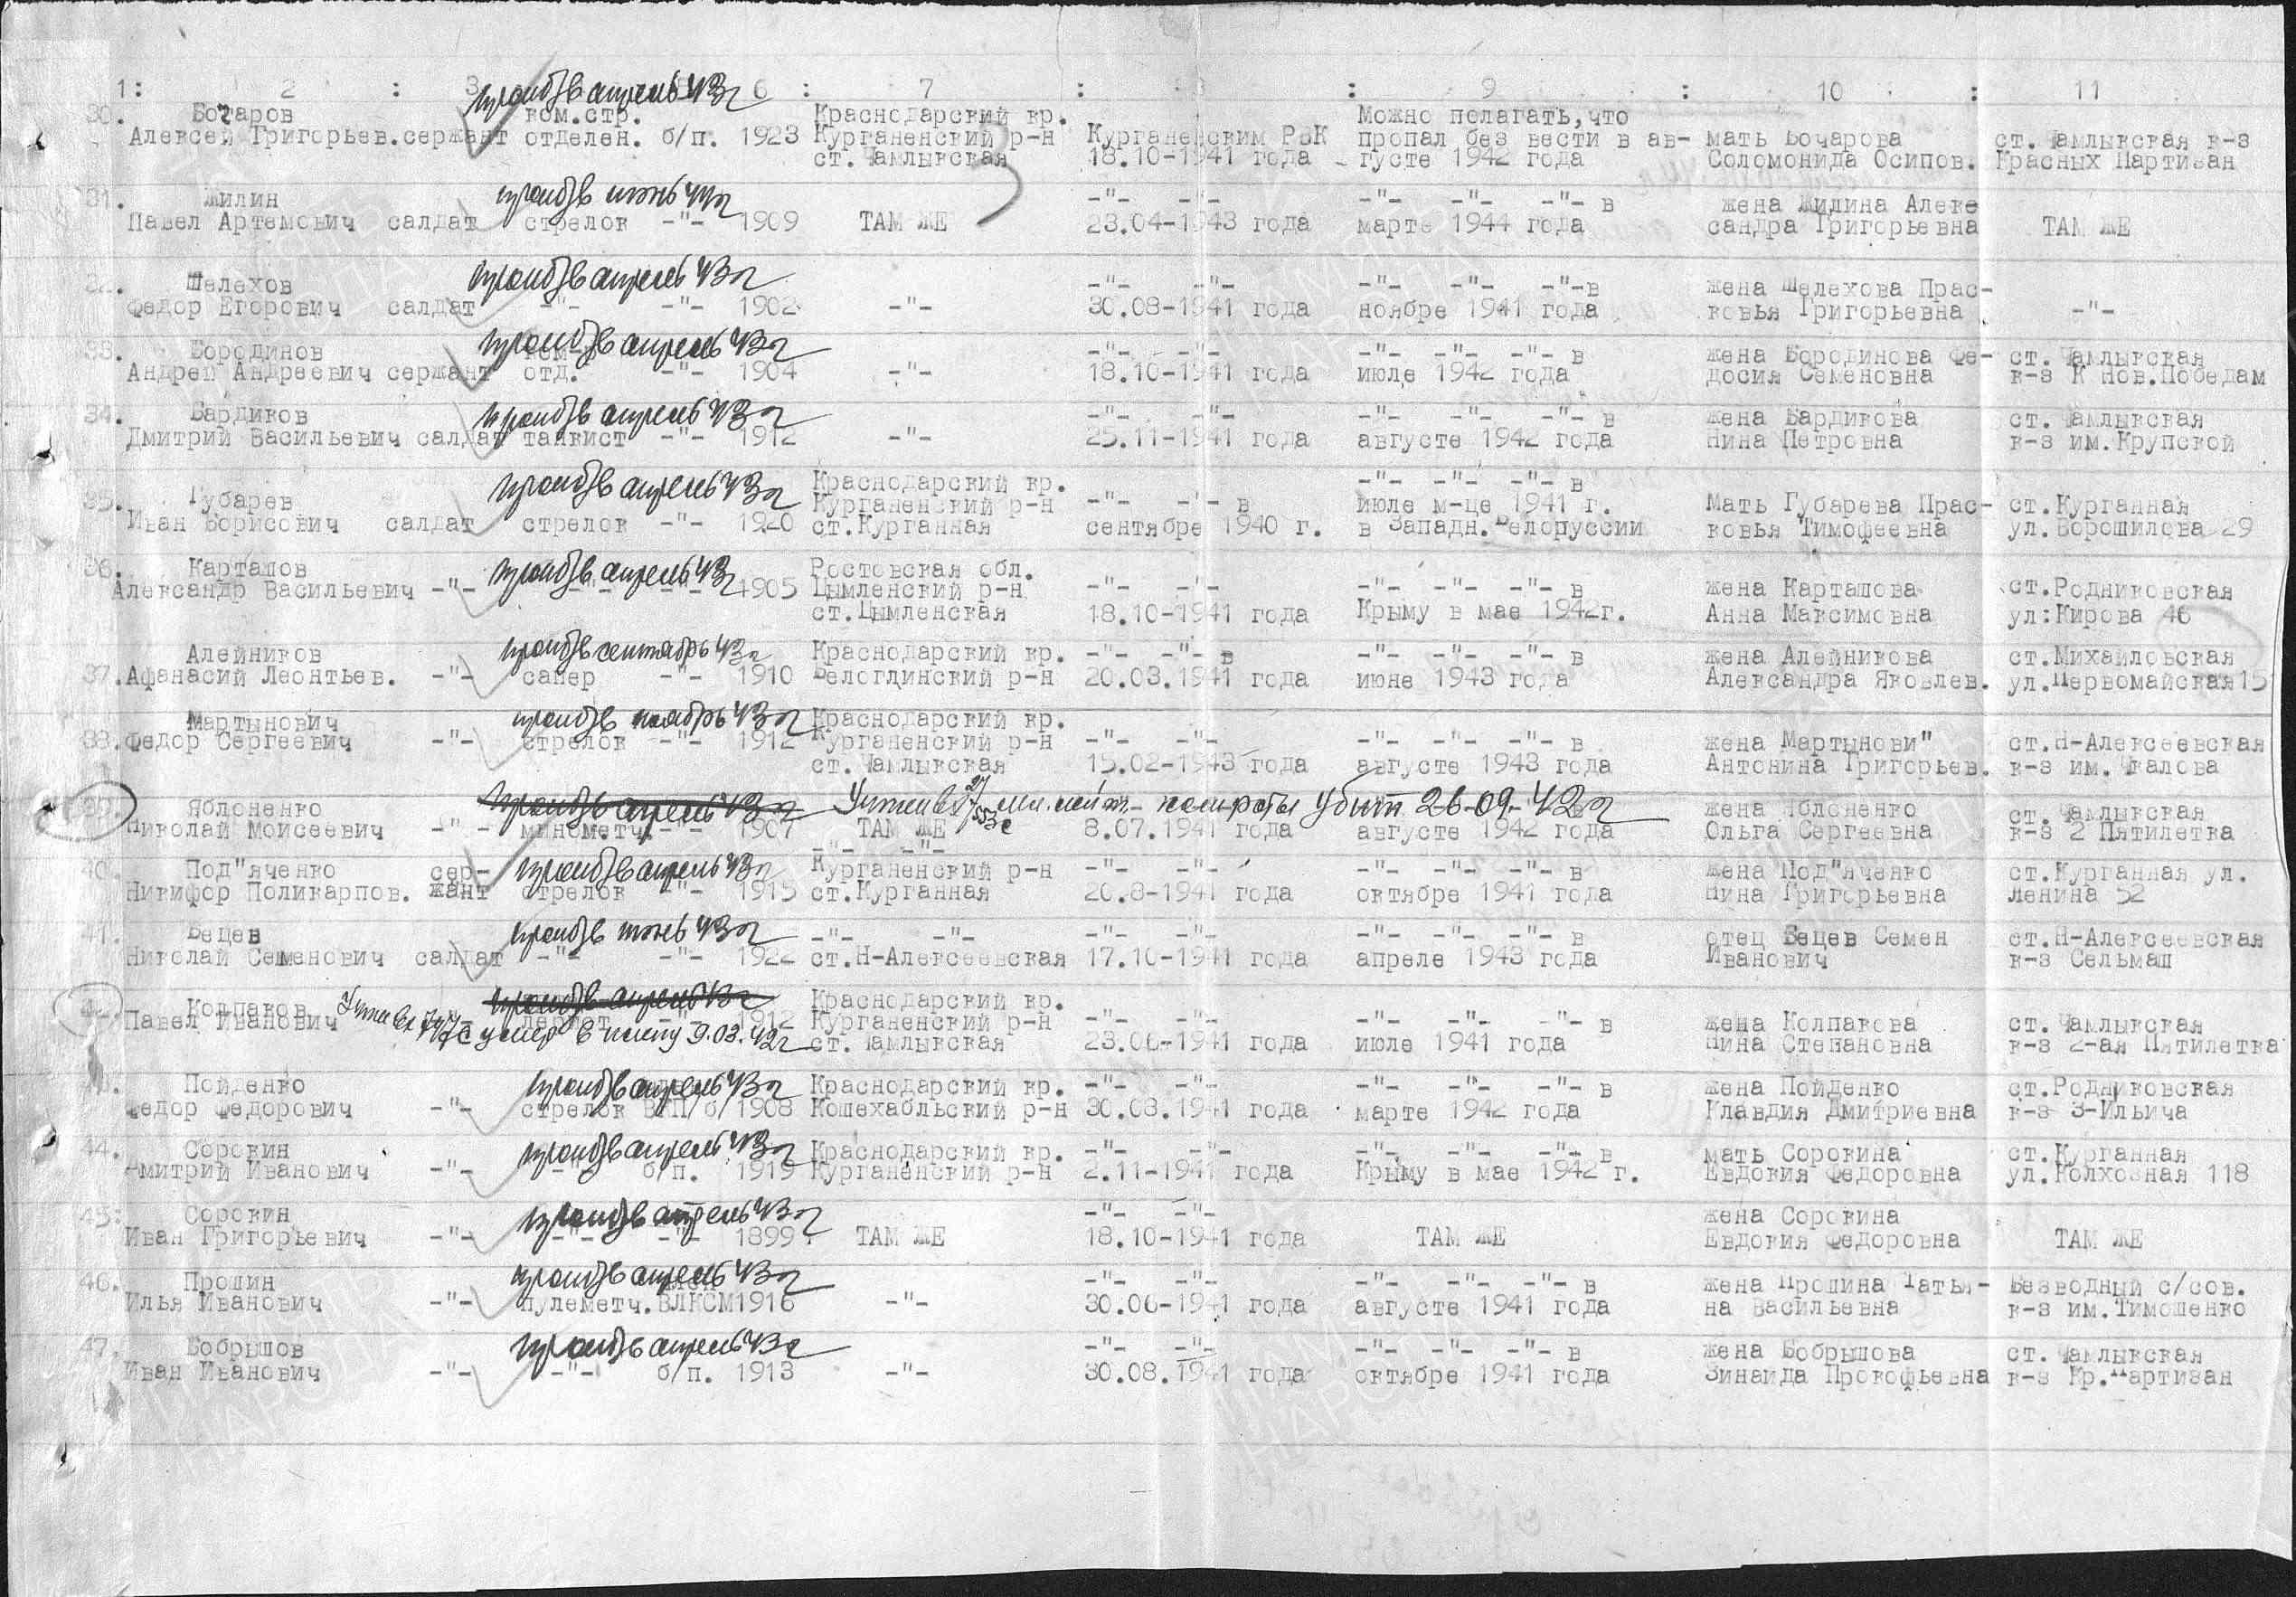 1: 2 : 3 6 : 7 : 8 : 9 : 10 : 11
проп б/в апрель 43г
30. Бочаров ком.стр. Краснодарский кр. Можно полагать,что
Алексей Григорьев.сержант отделен. б/п. 1923 Курганенский р-н Курганенским РВК пропал без вести в ав- мать Бочарова ст.Чамлыкская к-з
ст.Чамлыкская 18.10-1941 года густе 1942 года Соломонида Осипов. Красных Партизан
31. Жилин проп б/в июнь 44г -"- -"- -"- -"- -"- в жена Жилина Алекс
Павел Артемович салдат стрелок -"- 1909 ТАМ ЖЕ 23.04-1943 года марте 1944 года сандра Григорьевна ТАМ ЖЕ
32. Шелехов проп б/в апрель 43г -"- -"- -"- -"- -"-в жена Шелехова Прас-
Федор Егорович салдат -"- -"- 1902 -"- 30.08-1941 года ноябре 1941 года ковья Григорьевна -"-
33. Бородинов проп б/в апрель 43г -"- -"- -"- -"- -"- в жена Бородинова Фе- ст.Чамлыкская
Андрей Андреевич сержант отд. -"- 1904 -"- 18.10-1941 года июле 1942 года досия Семеновна к-з К Нов.Победам
34. Бардиков проп б/в апрель 43г -"- -"- -"- -"- -"- в жена Бардикова ст.Чамлыкская
Дмитрий Васильевич салдат танкист -"- 1912 -"- 25.11-1941 года августе 1942 года Нина Петровна к-з им.Крупской
проп б/в апрель 43г Краснодарский кр. -"- -"- -"- в
35. Губарев Курганенский р-н -"- -"- в июле м-це 1941 г. Мать Губарева Прас- ст.Курганная
Иван Борисович салдат стрелок -"- 1920 ст.Курганная сентябре 1940 г. в Западн.Белоруссии ковья Тимофеевна ул.Ворошилова 29
36. Карташов проп б/в апрель 43г Ростовская обл.
Александр Васильевич -"- -"- -"- 1905 Цымленский р-н -"- -"- -"- -"- -"- в жена Карташова ст.Родниковская
ст.Цымленская 18.10-1941 года Крыму в мае 1942г. Анна Максимовна ул:Кирова 46
Алейников проп б/в сентябрь 43г Краснодарский кр. -"- -"- в -"- -"- -"- в жена Алейникова ст.Михайловская
37.Афанасий Леонтьев. -"- сапер -"- 1910 Белоглинский р-н 20.03.1941 года июне 1943 года Александра Яковлев. ул.Первомайская15
Мартынович проп б/в ноябрь 43г Краснодарский кр.
38.Федор Сергеевич -"- стрелок -"- 1912 Курганенский р-н -"- -"- -"- -"- -"- в жена Мартынови" ст.Н-Алексеевская
ст.Чамлыкская 15.02-1943 года августе 1943 года Антонина Григорьев. к-з им.Чкалова
39. Яблоненко проп б/в апрель 43г убит 26-09-42г в жена Яблоненко ст.Чамлыкская
Николай Моисеевич -"- минометч. -"- 1907 ТАМ ЖЕ 8.07.1941 года августе 1942 года Ольга Сергеевна к-з 2 Пятилетка
-"- -"-
40. Под"яченко сер- проп б/в апрель 43г Курганенский р-н -"- -"- -"- -"- -"- в жена Под"яченко ст.Курганная ул.
Никифор Поликарпов. жант стрелок -"- 1915 ст.Курганная 20.8-1941 года октябре 1941 года Нина Григорьевна Ленина 52
41. Бецев проп б/в июнь 43г -"- -"- -"- -"- -"- -"- -"- в отец Бецев Семен ст.Н-Алексеевская
Николай Семенович салдат -"- -"- 1922 ст.Н-Алексеевская 17.10-1941 года апреле 1943 года Иванович к-з Сельмаш
42. Колпаков проп б/в апрель 43г Краснодарский кр.
Павел Иванович -"- 1912 Курганенский р-н -"- -"- -"- -"- -"- в жена Колпакова ст.Чамлыкская
умер в плену 9.03.42г ст.Чамлыкская 23.06-1941 года июле 1941 года Нина Степановна к-з 2-ая Пятилетка
43. Пойденко проп б/в апрель 43г Краснодарский кр. -"- -"- -"- -"- -"- в жена Пойденко ст.Родниковская
Федор Федорович -"- стрелок ВКП/б/1908 Кошехабльский р-н 30.08.1941 года марте 1942 года Клавдия Дмитриевна к-з З-Ильича
44. Сорокин проп б/в апрель 43г Краснодарский кр. -"- -"- -"- -"- -"- в мать Сорокина ст.Курганная
Дмитрий Иванович -"- -"- б/п. 1919 Курганенский р-н 2.11-1941 года Крыму в мае 1942 г. Евдокия Федоровна ул.Колхозная 118
45: Сорокин проп б/в апрель 43г -"- -"- жена Сорокина
Иван Григорьевич -"- -"- -"- 1899 ТАМ ЖЕ 18.10-1941 года ТАМ ЖЕ Евдокия Федоровна ТАМ ЖЕ
46. Пронин проп б/в апрель 43г -"- -"- -"- -"- -"- в жена Пронина Татья- Безводный с/сов.
Илья Иванович -"- пулеметч.ВЛКСМ1916 -"- 30.06-1941 года августе 1941 года на Васильевна к-з им.Тимошенко
47. Бобрышов проп б/в апрель 43г -"- -"- -"- -"- -"- в жена Бобрышова ст.Чамлыкская
Иван Иванович -"- -"- б/п. 1913 -"- 30.08.1941 года октябре 1941 года Зинаида Прокофьевна к-з Кр.Партизан